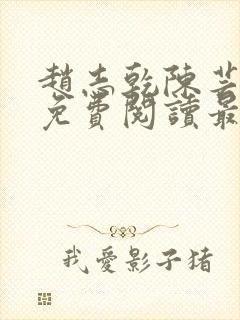 趙志乾陳芸
免費閱讀最
我愛影子猪